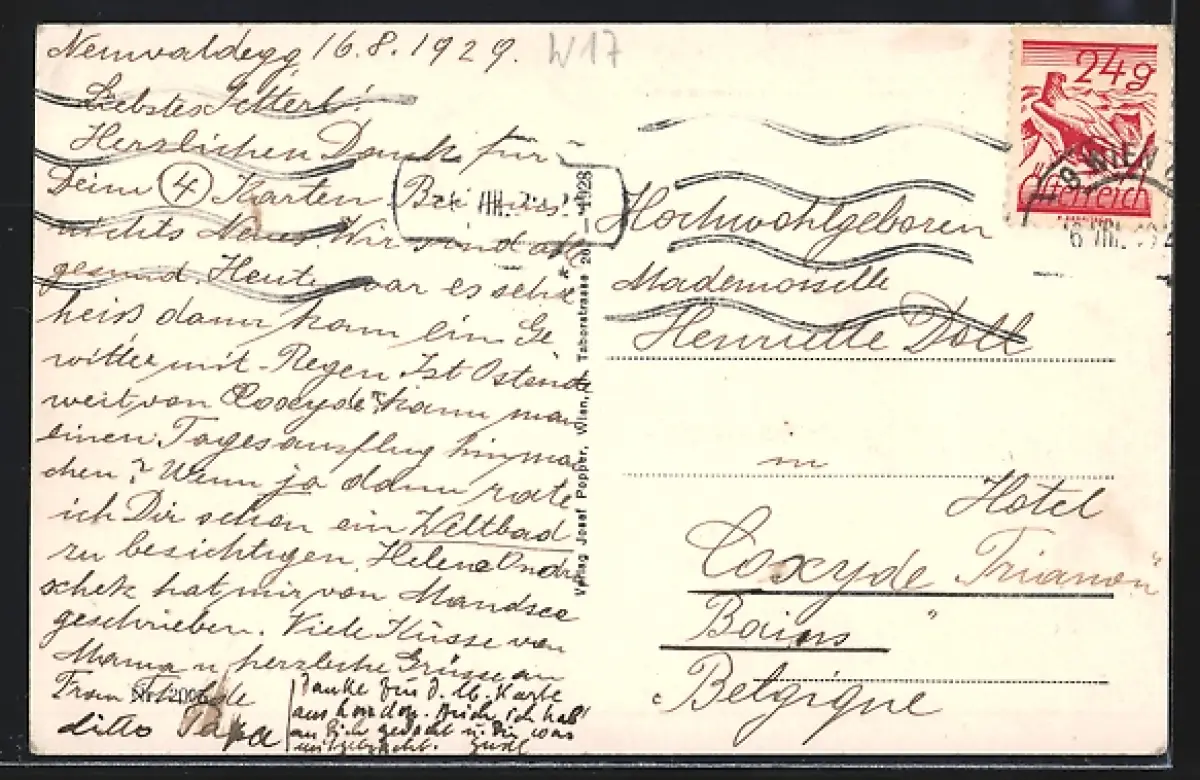 Neuwaldegg 16.8.1929.
W17
Liebstes Jetterl!
Herzlichen Dank für
Deine 4 Karten Bei uns
nichts Neues. Wir sind alle
gesund. Heute war es sehr
heiss dann kam ein Ge
witter mit Regen. Ist Ostende
weit von Coxyde? kann man
einen Tagesausflug hinma
chen? Wenn ja dann rate
ich Dir schon ein Weltbad
zu besichtigen. Helene
schek hat mir von Mondsee
geschrieben. Viele Küsse von
Mama u herzliche Grüsse an
Frau
ditto Papa
Danke für d. lb. Karte
aus London. Auch ich hab
an Dich gedacht u. Dir was
mitgebracht. Gustl
Nr. 2006
Verlag Josef Popper, Wien, Taborstrasse 20 — 1928
24g
Österreich
WIEN
Hochwohlgeboren
Mademoiselle
Henriette Doll
in
Hotel
Coxyde "Trianon"
Bains "
Belgique